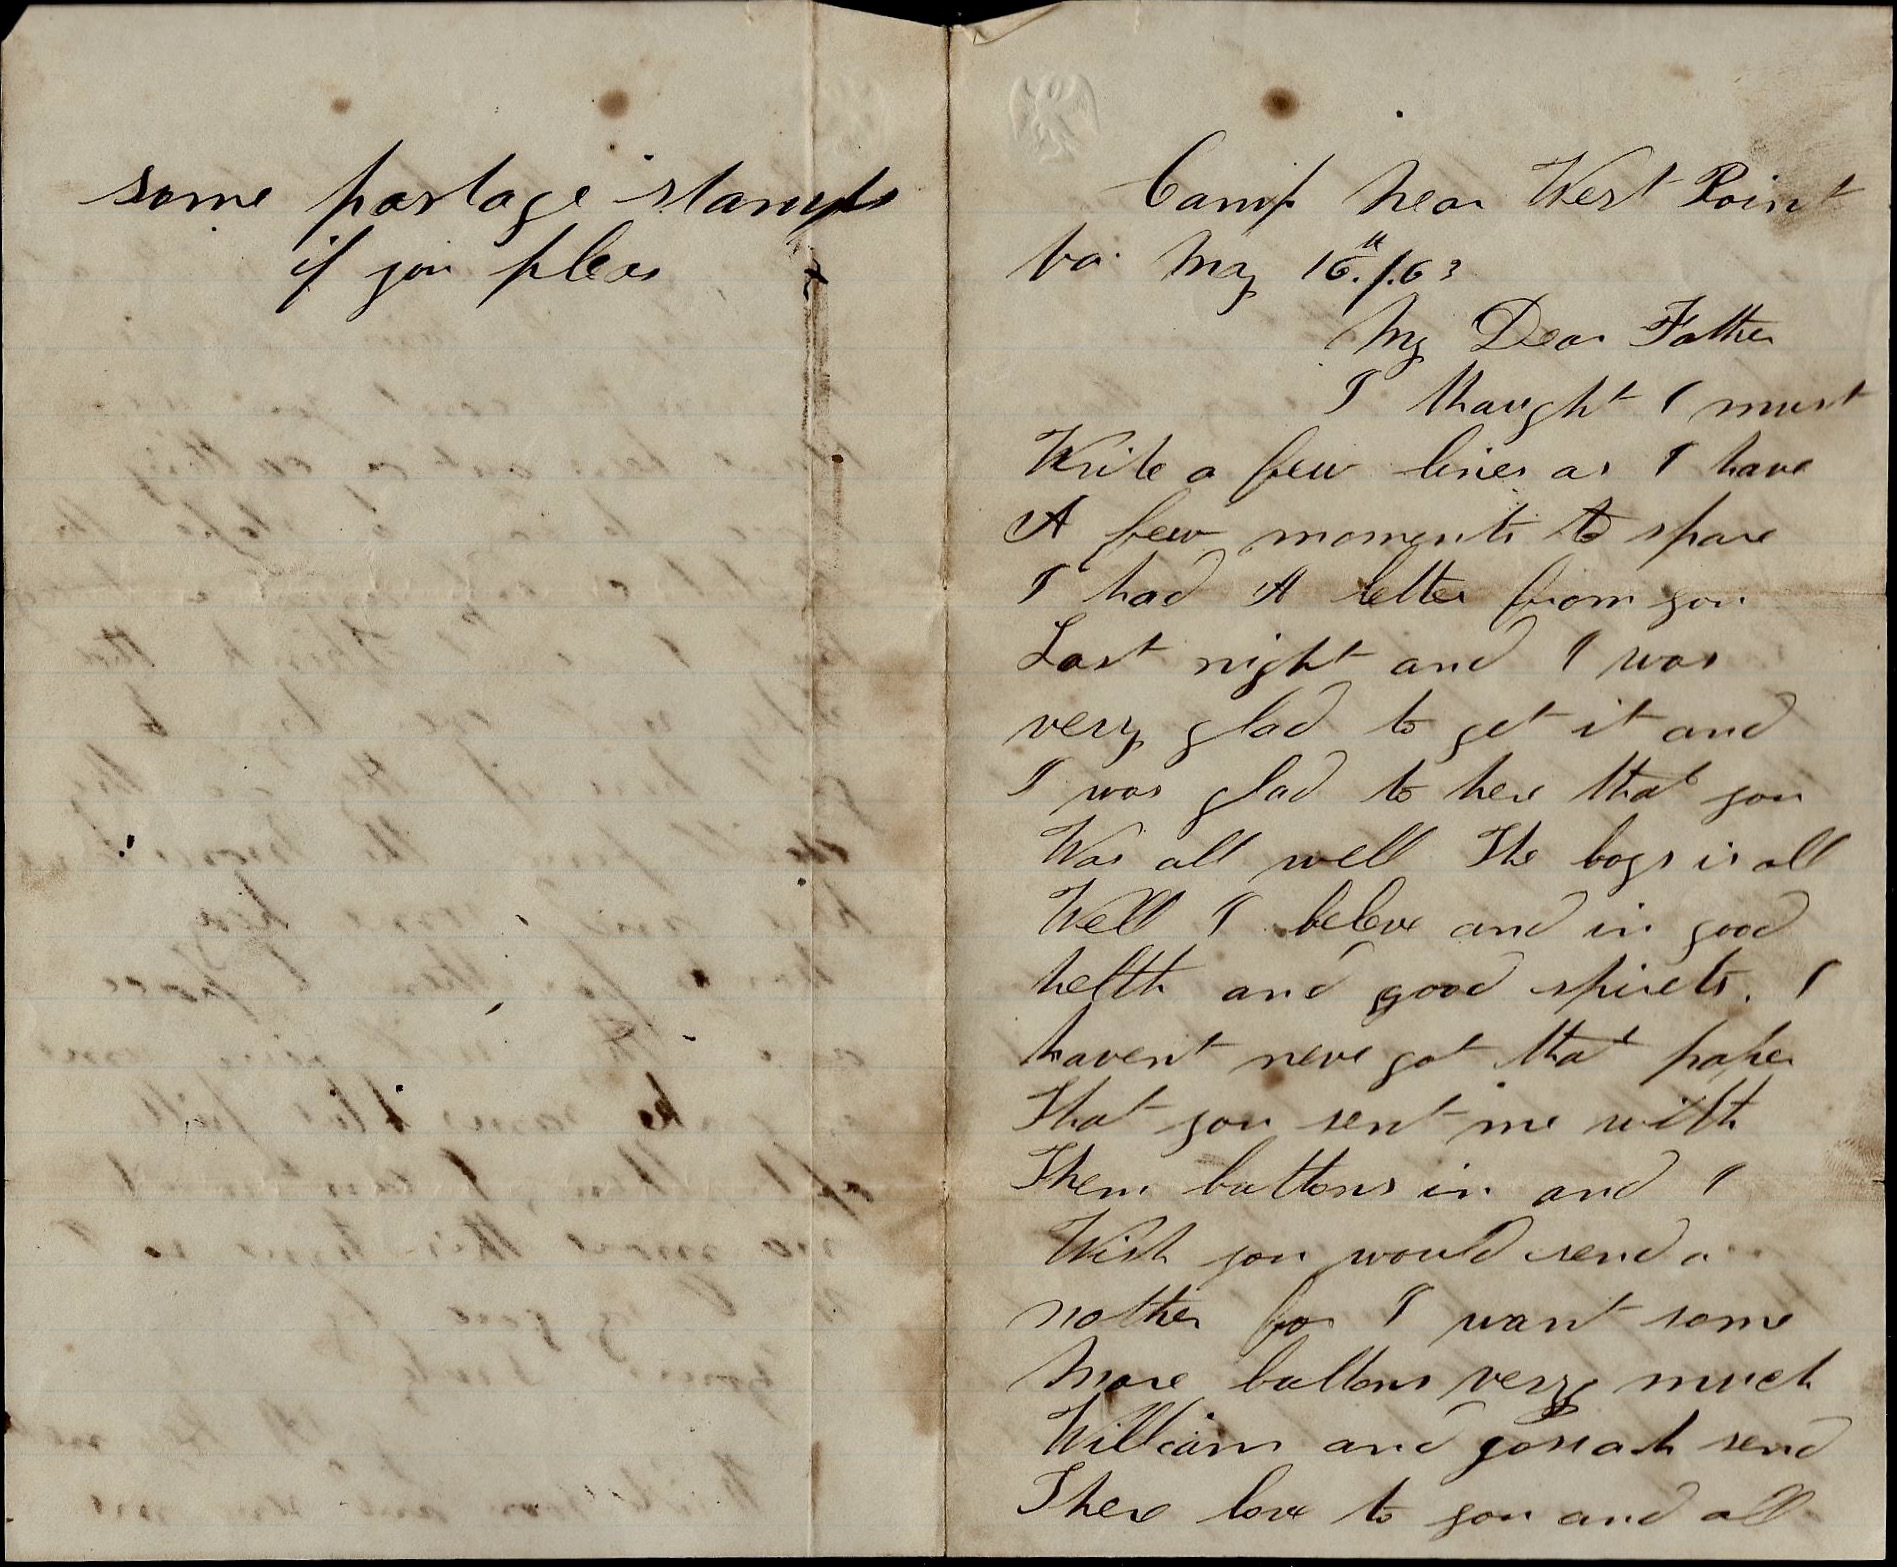 some postage stamps
if you pleas
Camp Near West Point
Va. May 16th./.63
My Dear Father
I thought I must
Write a few lines as I have
A few moments to spare
I had A letter from you
Last night and I was
very glad to get it and
I was glad to here that you
Was all well The boys is all
Well I beleve and in good
helth and good spirets. I
havent neve got that paper
That you sent me with
Them buttons in and I
Wish you would send a
nother for I want some
More buttons very much
William and Josiah send
There love to you and all